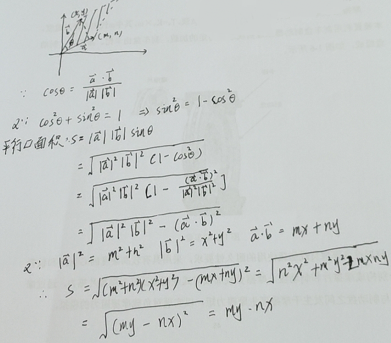 (x, y)
b⃗
θ
a⃗
(m, n)
∵ cosθ = a⃗·b⃗ / |a⃗||b⃗|
又∵ cos²θ + sin²θ = 1 ⇒ sin²θ = 1 - cos²θ
平行口面积: S = |a⃗| |b⃗| sinθ
= √(|a⃗|² |b⃗|² (1 - cos²θ))
= √(|a⃗|² |b⃗|² [1 - (a⃗·b⃗)² / |a⃗|²|b⃗|²])
= √(|a⃗|² |b⃗|² - (a⃗·b⃗)²)
又∵ |a⃗|² = m² + n² |b⃗|² = x² + y² a⃗·b⃗ = mx + ny
∴ S = √((m²+n²)(x²+y²) - (mx+ny)²) = √(n²x² + m²y² - 2mxny)
= √((my - nx)²) = my - nx